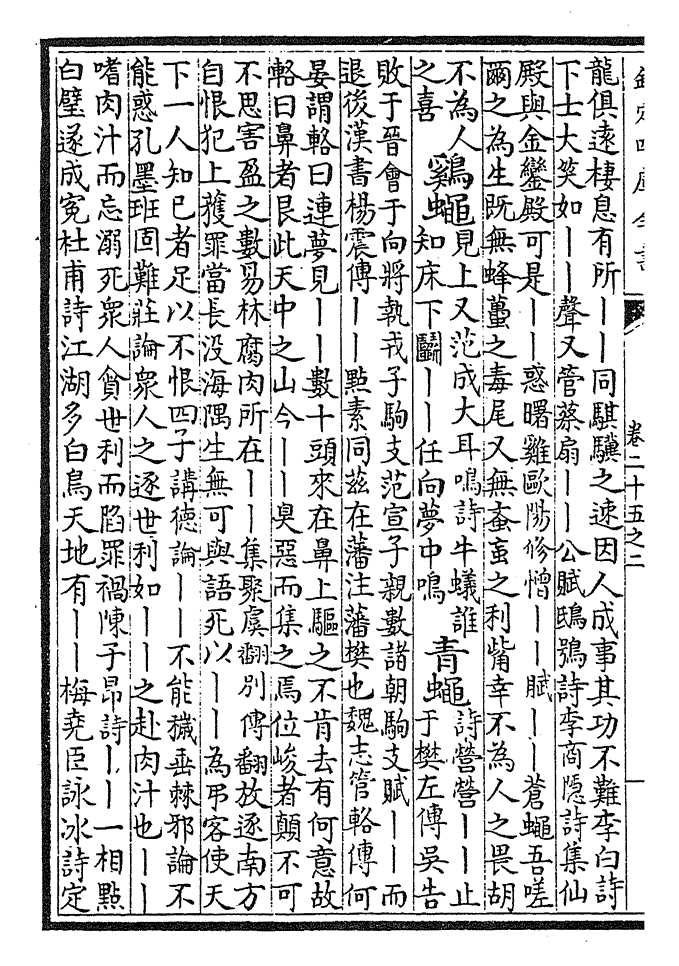 欽定四庫全書
卷二十五之二
龍俱遠棲息有所丨丨同騏驥之速因人成事其功不難李白詩
下士大笑如丨丨聲又管蔡扇丨丨公賦鴟鴞詩李商隱詩集仙
殿與金鑾殿可是丨丨惑曙雞歐陽修憎丨丨賦丨丨蒼蠅吾嗟
爾之為生既無蜂蠆之毒尾又無蚉䖟之利觜幸不為人之畏胡
不為人
之喜
鷄蠅
見上又范成大耳鳴詩牛蟻誰
知床下鬭丨丨任向夢中鳴
青蠅
詩營營丨丨止
于樊左傳吳告
敗于晉會于向將執戎子駒支范宣子親數諸朝駒支賦丨丨而
退後漢書楊震傳丨丨點素同兹在藩注藩樊也魏志管輅傳何
晏謂輅曰連夢見丨丨數十頭來在鼻上驅之不肯去有何意故
輅曰鼻者艮此天中之山今丨丨臭惡而集之焉位峻者顛不可
不思害盈之數易林腐肉所在丨丨集聚虞翻别傳翻放逐南方
自恨犯上獲罪當長没海隅生無可與語死以丨丨為弔客使天
下一人知已者足以不恨四子講德論丨丨不能穢垂棘邪論不
能惑孔墨班固難莊論衆人之逐世利如丨丨之赴肉汁也丨丨
嗜肉汁而忘溺死衆人貪世利而陷罪禍陳子昂詩丨丨一相點
白璧遂成寃杜甫詩江湖多白鳥天地有丨丨梅堯臣詠冰詩定